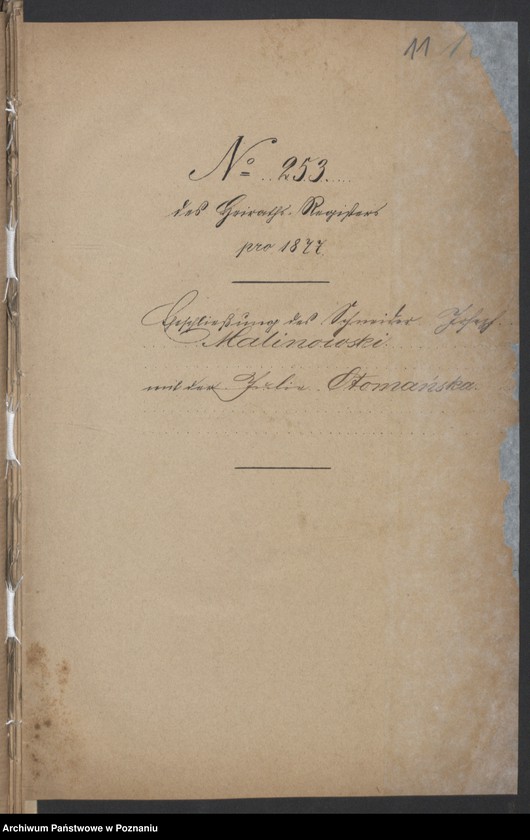 11
No 253.
des Heiraths-Registers
pro 1877.
Eheschließung des Schneider Josef
Malinowski
mit der Julie Otomańska.
Archiwum Państwowe w Poznaniu